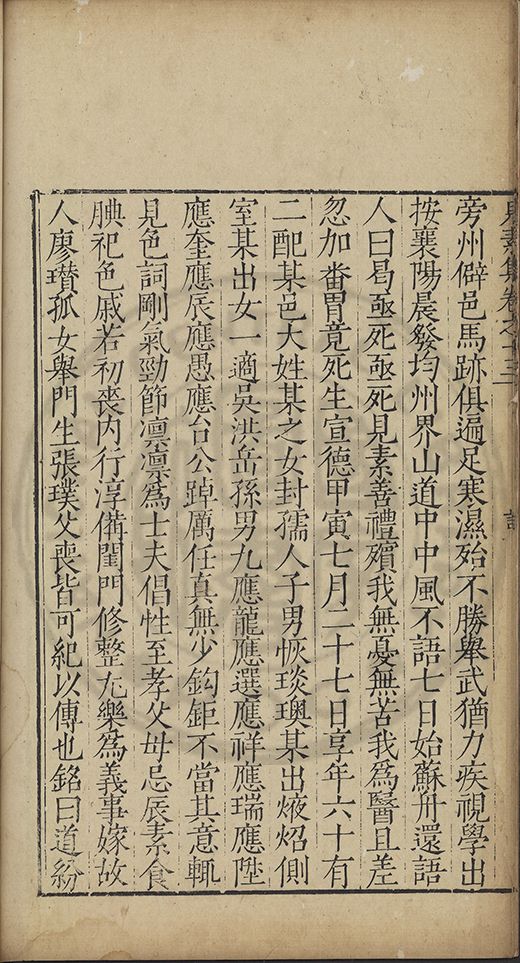 見素集卷之十三
旁州僻邑馬跡俱遍足寒濕殆不勝舉武猶力疾視學出
按襄陽晨發均州界山道中中風不語七日始蘇舟還語
人曰曷亟死亟死見素善禮殯我無憂無苦我為醫且差
忽加畨胃竟死生宣德甲寅七月二十七日享年六十有
二配某邑大姓某之女封孺人子男恢琰璵某出焲炤側
室某出女一適吳洪岳孫男九應龍應選應祥應瑞應陞
應奎應辰應愚應台公踔厲任真無少鈎鉅不當其意輒
見色詞剛氣勁節凛凛為士夫倡性至孝父母忌辰素食
腆祀色戚若初喪内行淳備閨門修整尤樂為義事嫁故
人廖瓚孤女舉門生張璞父喪皆可紀以傳也銘曰道紛